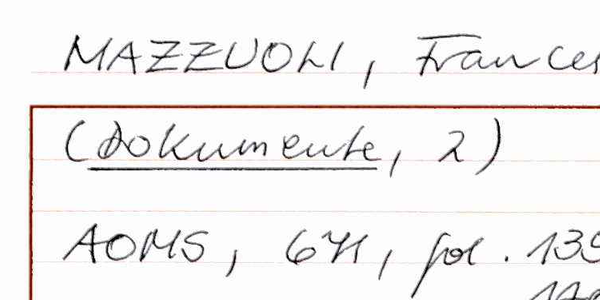 MAZZUOLI, Frances
(Dokumente, 2)
AOMS, 641, fol. 139